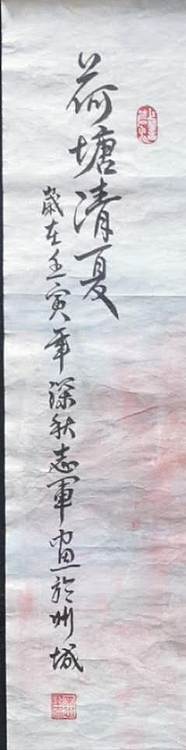 荷塘清夏
歲在壬寅年深秋志軍画於州城